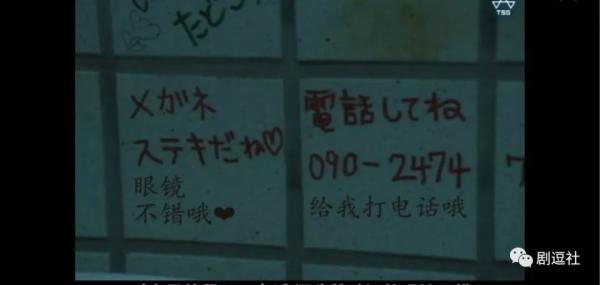 たどこ
TSG
メガネ
ステキだね♡
眼镜
不错哦❤
電話してね
090-2474
给我打电话哦
剧逗社